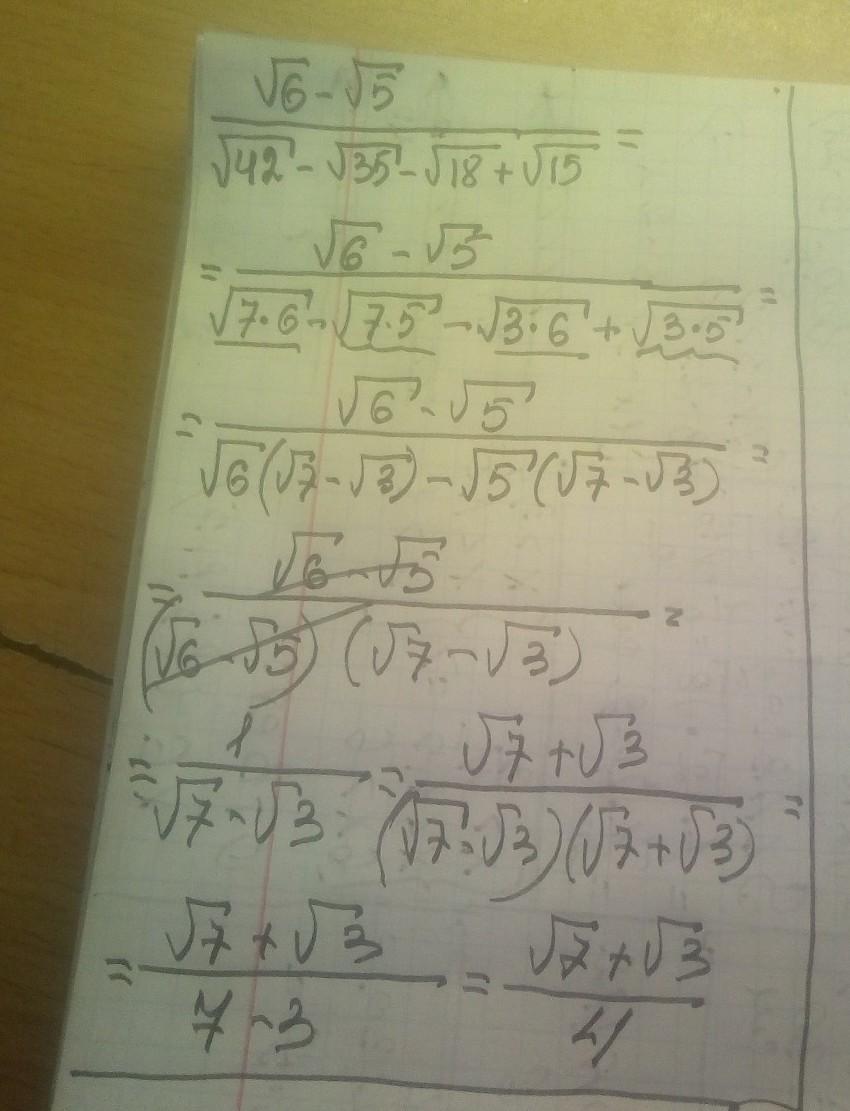 (√6 - √5)/(√42 - √35 - √18 + √15) =
= (√6 - √5)/(√(7·6) - √(7·5) - √(3·6) + √(3·5)) =
= (√6 - √5)/(√6(√7 - √3) - √5(√7 - √3)) =
= (√6 - √5)/((√6 - √5)(√7 - √3)) =
= 1/(√7 - √3) = (√7 + √3)/((√7 - √3)(√7 + √3)) =
= (√7 + √3)/(7 - 3) = (√7 + √3)/4